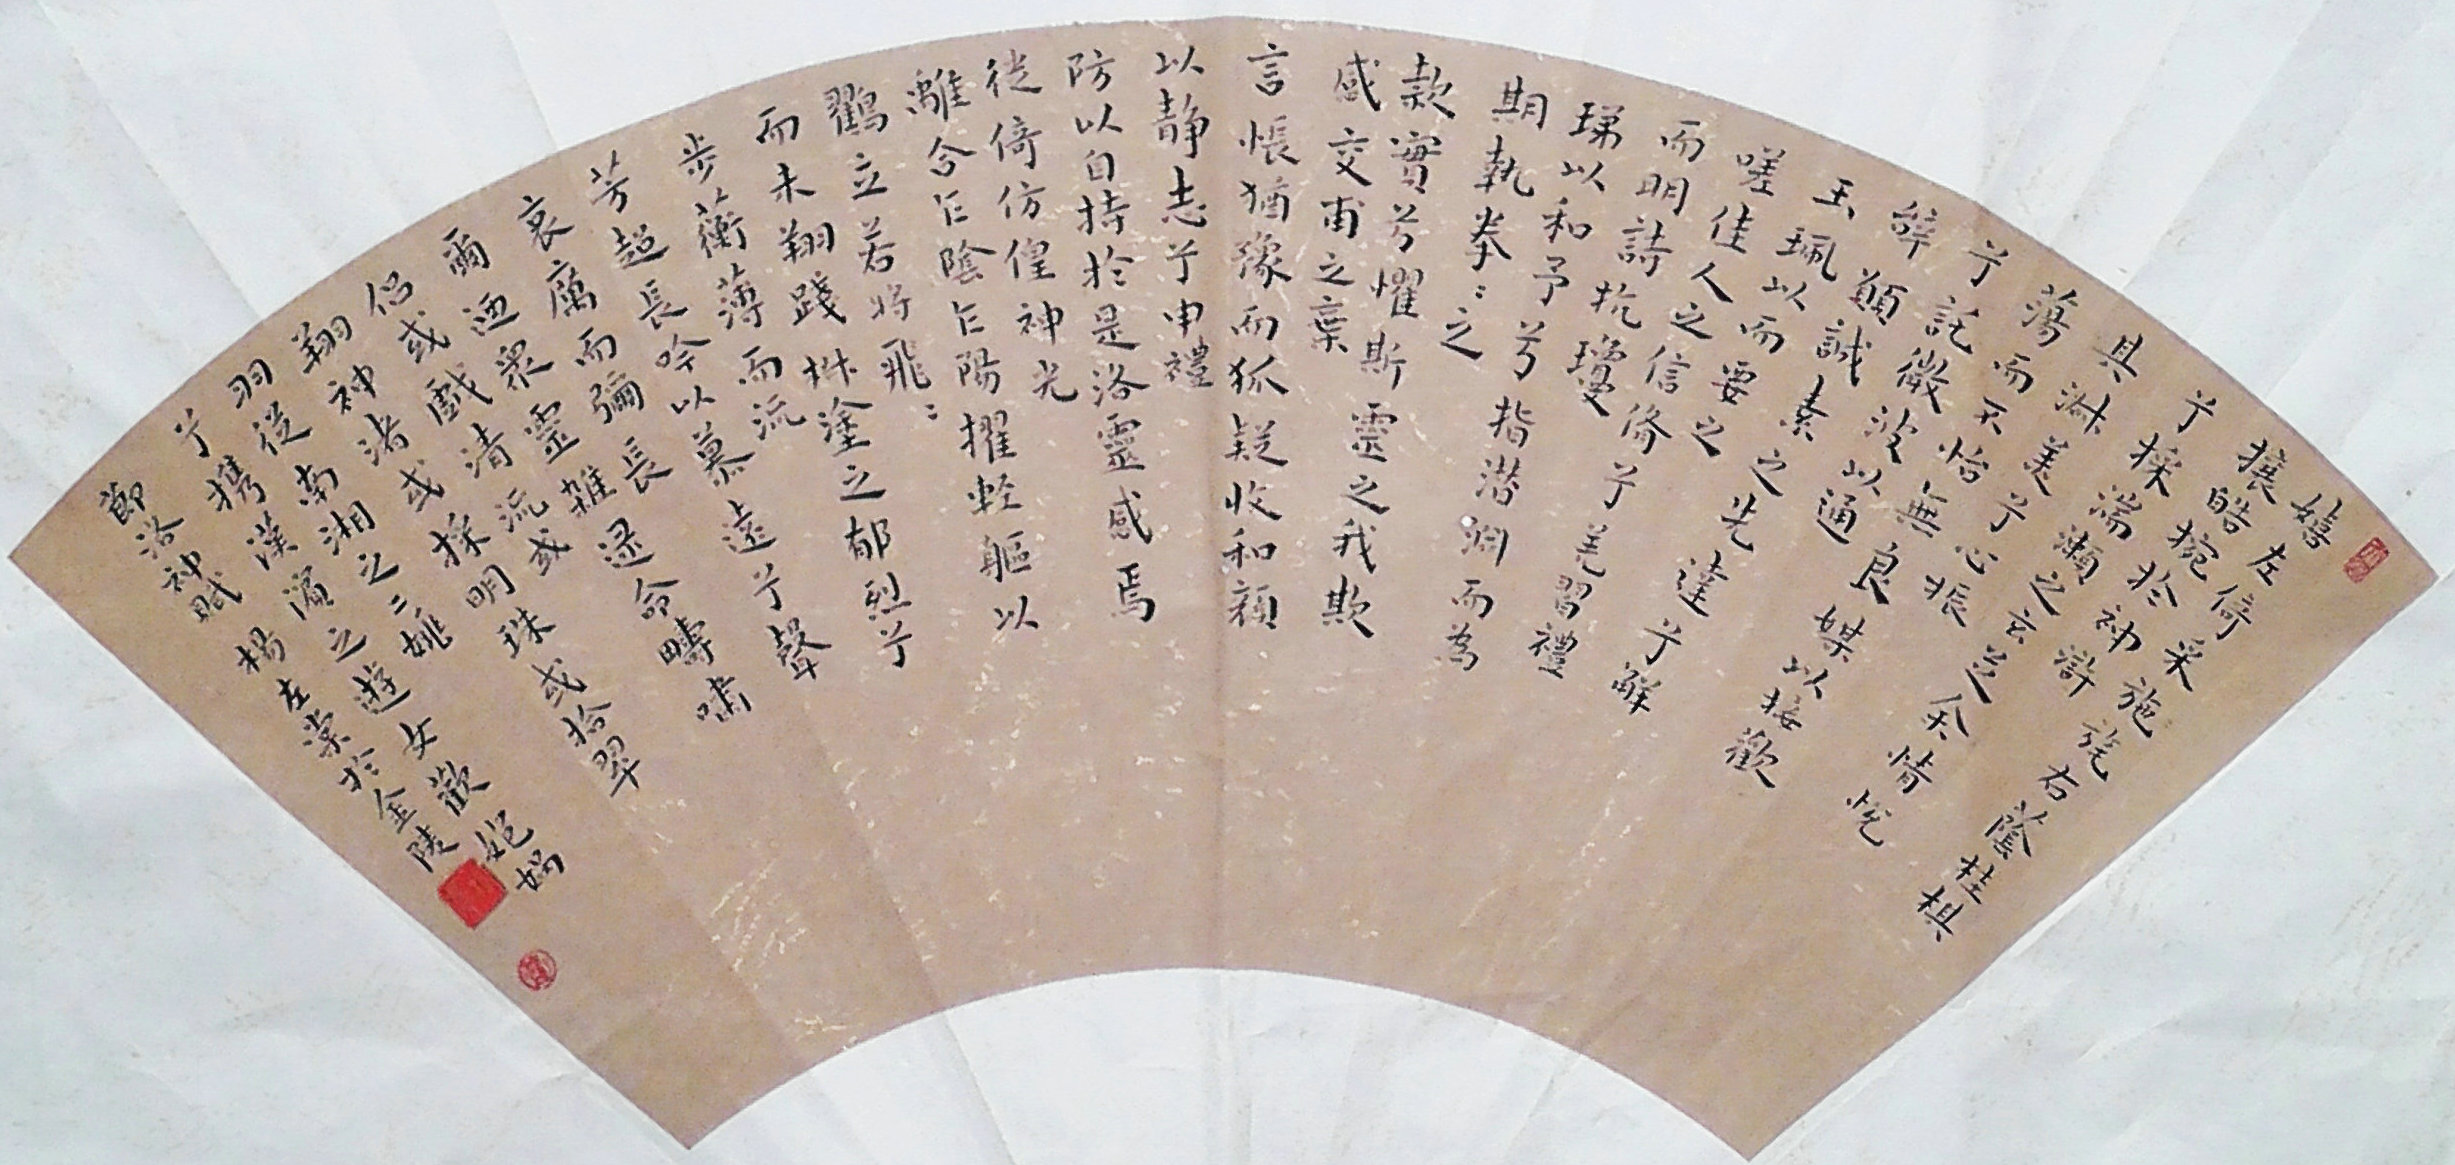 嬉左倚采施旄右蔭桂棋
攘皓腕於神滸
兮採湍瀨之玄芝余情悅
其淋美兮心振
蕩而不怡無良媒以接歡
兮託微波以通
辭願誠素之先達兮解
玉珮以而要之
嗟佳人之信脩兮羌習禮
而明詩抗瓊
珶以和予兮指潛淵而為
期執拳:之
款實兮懼斯靈之我欺
感交甫之棄
言悵猶豫而狐疑收和顏
以靜志兮申禮
防以自持於是洛靈感焉
徙倚仿偟神光
離合乍陰乍陽擢輕軀以
鸖立若將飛:
而未翔踐椒塗之郁烈兮
步蘅薄而流
芳超長吟以慕遠兮聲
哀厲而彌長
爾迺眾靈雜遝命疇嘯
侶或戲清流或
翔神渚或採明珠或拾翠
羽從南湘之二姚
兮携漢濱之遊女歡妃媧
節洛神賦 楊左棠於金陵